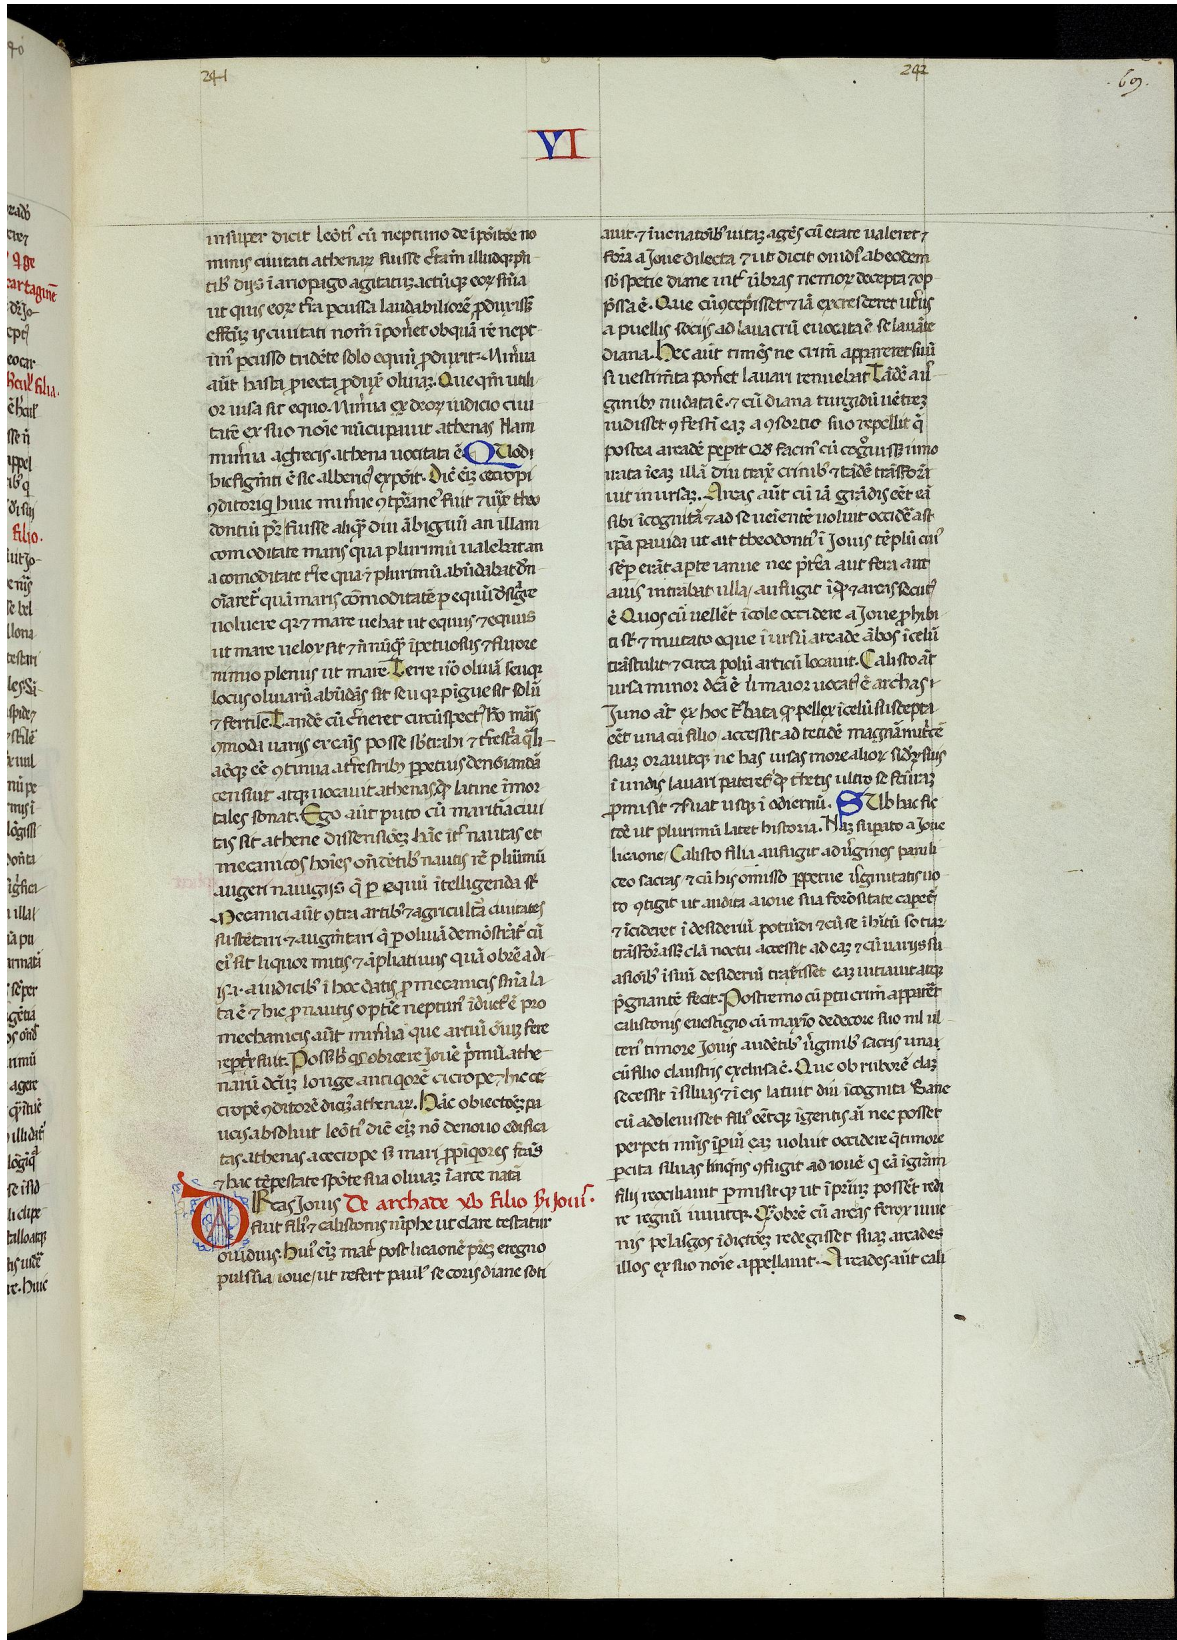 241
242
69.
VI
insuper dicit leōti᷒ cū neptuno de īpōitōe no
minis ciuitati athenaꝝ fuisse c̄tam̄ illudqꝫ p̄n
tib᷒ dijs ī ariopago agitatū actūqꝫ eoꝝ s̄nīa
ut quis eoꝝ t̄ra ꝑcussa laudabiliorē ꝓduxissꝫ
effc̄ū is ciuitati nom̄ īpon̄et ob quā rē nept
un᷒ ꝑcusso tridēte solo equū ꝓduxit. Min̄ua
aūt hasta ꝓiecta ꝓdux̄ oliuaꝫ. Que qm̄ utili
or uisa sit equo. Min̄ua ex deoꝝ iudicio ciui
tatē ex suo noīe nūcupauit athenas Nam
min̄ua a grecis athena uocitata ē. Quod
hic figm̄ti ē sic alberic᷒ expōit. Dic̄ ēīꝫ cecropi
ꝯditoriqꝫ huic
dontiū pꝛ fuisse aliqꝫ diu ābiguū an illam
comoditate maris qua plurimū ualebat an
a comoditate tr̄e qua ⁊ plurimū abūdabat dn̄
oīaret᷒ quā maris cōmoditatē ꝑ equū dsig̅re
uoluere qꝛ ⁊ mare uehat ut equus ⁊ equus
ut mare uelox sit ⁊ n̄nūqꝫ īpetuosus ⁊ furore
nimio plenus ut mare. Terre u̅o oliuā seu qꝛ
locus oliuarū abūdās sit seu qꝛ pīgue sit solū
⁊ fertile. Tandē cū c̄neret circūspect᷒ h̄o māis
ꝯmoda uarijs ex cāis posse sb̄trahi ⁊ tr̄estꝛa
aīqꝫ eē ꝯtinua a tr̄estribꝫ ꝑpetuis denōiandā
censuit atqꝫ uocauit athenas ꝙ latine īmor
tales sonat. Ego aūt puto cū maritīa ciui
tas sit athene dissensiōeꝫ hāc īt᷒ nautas et
mecanicos hoīes on̄dētib᷒ nautis rē plurimū
augeri nauigijs q̄ ꝑ equū ītelligenda st̄
Mecanici aūt ꝯtra artib᷒ ⁊ agricultā ciuitates
sustētari ⁊ augm̄tari q̄ ꝑ oliuā demōstrat᷒ cū
ei᷒ sit liquor mitis ⁊ ā̄pliatiuus quā obrē a di
is .i. a iudicib᷒ ī hoc datis ꝓ mecanicis s̄nīa la
ta ē ⁊ hic ꝓ nautis optīe neptun᷒ īduct᷒ ē pro
mechanicis aūt min̄ua que artiū oīuꝫ fere
reptꝛix fuit. Possꝫ qs obicere Jouē p̄mū athe
narū dc̄ū longe antiqorē cicrope ⁊ hic ce
cropē ꝯditorē diciꝫ athenaꝝ. Hāc obiectōeꝫ pa
ucis absoluit leōti᷒ dic̄ ēīꝫ nō denouo edifica
tas athenas a cecrope sꝫ mari ꝓpiqores fc̄as
⁊ hac tēpestate spōte sua oliuaꝫ ī arce natā
De archade xv filio scdi Jouis.
ARcas Jouis
fuit fili᷒ ⁊ calistonis nīphe ut clare testatur
ouidius. Hui᷒ ēīꝫ mat᷒ post licaonē p̄reꝫ e regno
pulsū a ioue, ut refert paul᷒ se coris diane soti
auit. ⁊ ī uenatōib᷒ uitaꝫ agēs cū etate ualeret ⁊
forā a Joue dilecta ⁊ ut dicit ouidi᷒ ab eodem
sb̄ spetie diane int᷒ ūbras nemoꝝ decepta ⁊ op
p̄ssa ē. Que cū ꝯcepisset ⁊ iā excresceret ut̄us
a puellis socijs ad lauacrū euocata ē se lauāte
diana. Hec aūt timēs ne crim̄ appareret suū
si uestim̄ta pon̄et lauari renuebat. Tādē a uir
ginibꝫ nudata ē. ⁊ cū diana turgidū uētreꝫ
uidisset ꝯfestī eaꝫ a ꝯsortio suo repellit q̄
postea arcadē peperit Qd facin᷒ cū cog̅uissꝫ iuno
irata ī eaꝫ illā diu trax̄ crinib᷒ ⁊ tādē trāsform
uit in ursaꝫ. Arcas aūt cū iā grādis eēt ⁊ eā
sibi īcognitā ⁊ ad se ueiētē uoluit occidē ast
ipa pauida ut ait theodonti᷒ ī Jouis tēplū cui᷒
sēp erāt aperte ianue nec p̄terea aut fera aut
auis intrabat ulla, aufugit īqꝫ ⁊ arcas secut᷒
ē Quos cū uellēt īcole occidere a Joue ꝓhibi
ti st̄ ⁊ mutato eque ī ursū arcade ābos ī celū
trāstulit ⁊ circa polū articū locauit. Calisto aūt
ursa minor dc̄a ē u̅ maior uocat᷒ ē archas.
Juno aūt ex hoc t᷒bata ꝙ pellex ī celū suscepta
eēt una cū filio accessit ad tetidē magnā nutꝛicē
suaꝫ orauitqꝫ ne has ursas more alioꝝ sidꝝ suis
ī undis lauari pateret᷒ ꝙ thetis ultro se fcūraꝫ
ꝓmisit ⁊ s̄uat usqꝫ ī odiernū. SUb hac fic
tōe ut plurimū latet historia. Naꝫ supato a Joue
licaone, Calisto filia aufugit ad ūgines pani li
ceo sacras ⁊ cū his omisso ꝑpetue ūginitatis uo
to ꝯtigit ut audita a ioue sua formositate capet᷒
⁊ īcideret ī desideriū potiūdi ⁊ cū se ī hītū sotiar
trāsformassꝫ clā noctu accessit ad eaꝫ ⁊ cū uarijs su
asiōib᷒ ī suū desideriū traxisset eaꝫ uitiauit atqꝫ
p̄gnantē fecit. Postremo cū ꝑtu crim̄ apparēt
calistonis e uestigio cū maxīo dedecore suo nil ul
teri᷒ timore Jouis audētib᷒ ūginib᷒ sacris una
cū filio claustris exclusa ē. Que ob ruborē claꝫ
secessit ī siluas ⁊ ī eis latuit diu īcognita Sane
cū adoleuisset fili᷒ eētqꝫ īgentis aī nec posset
perpeti mr̄is īꝑiū eaꝫ uoluit occidere q̄ timore
ꝑcita siluas linqns ꝯfugit ad iouē q eā ī gr̄am
filij recōciliauit ꝑmisitqꝫ ut ī pr̄iuꝫ possēt redi
re regnū iuuitqꝫ. Qobrē cū arcas ferox iuue
nis pelasgos ī dictōeꝫ redegisset suaꝫ arcades
illos ex suo noīe appellauit. Arcades aūt cali